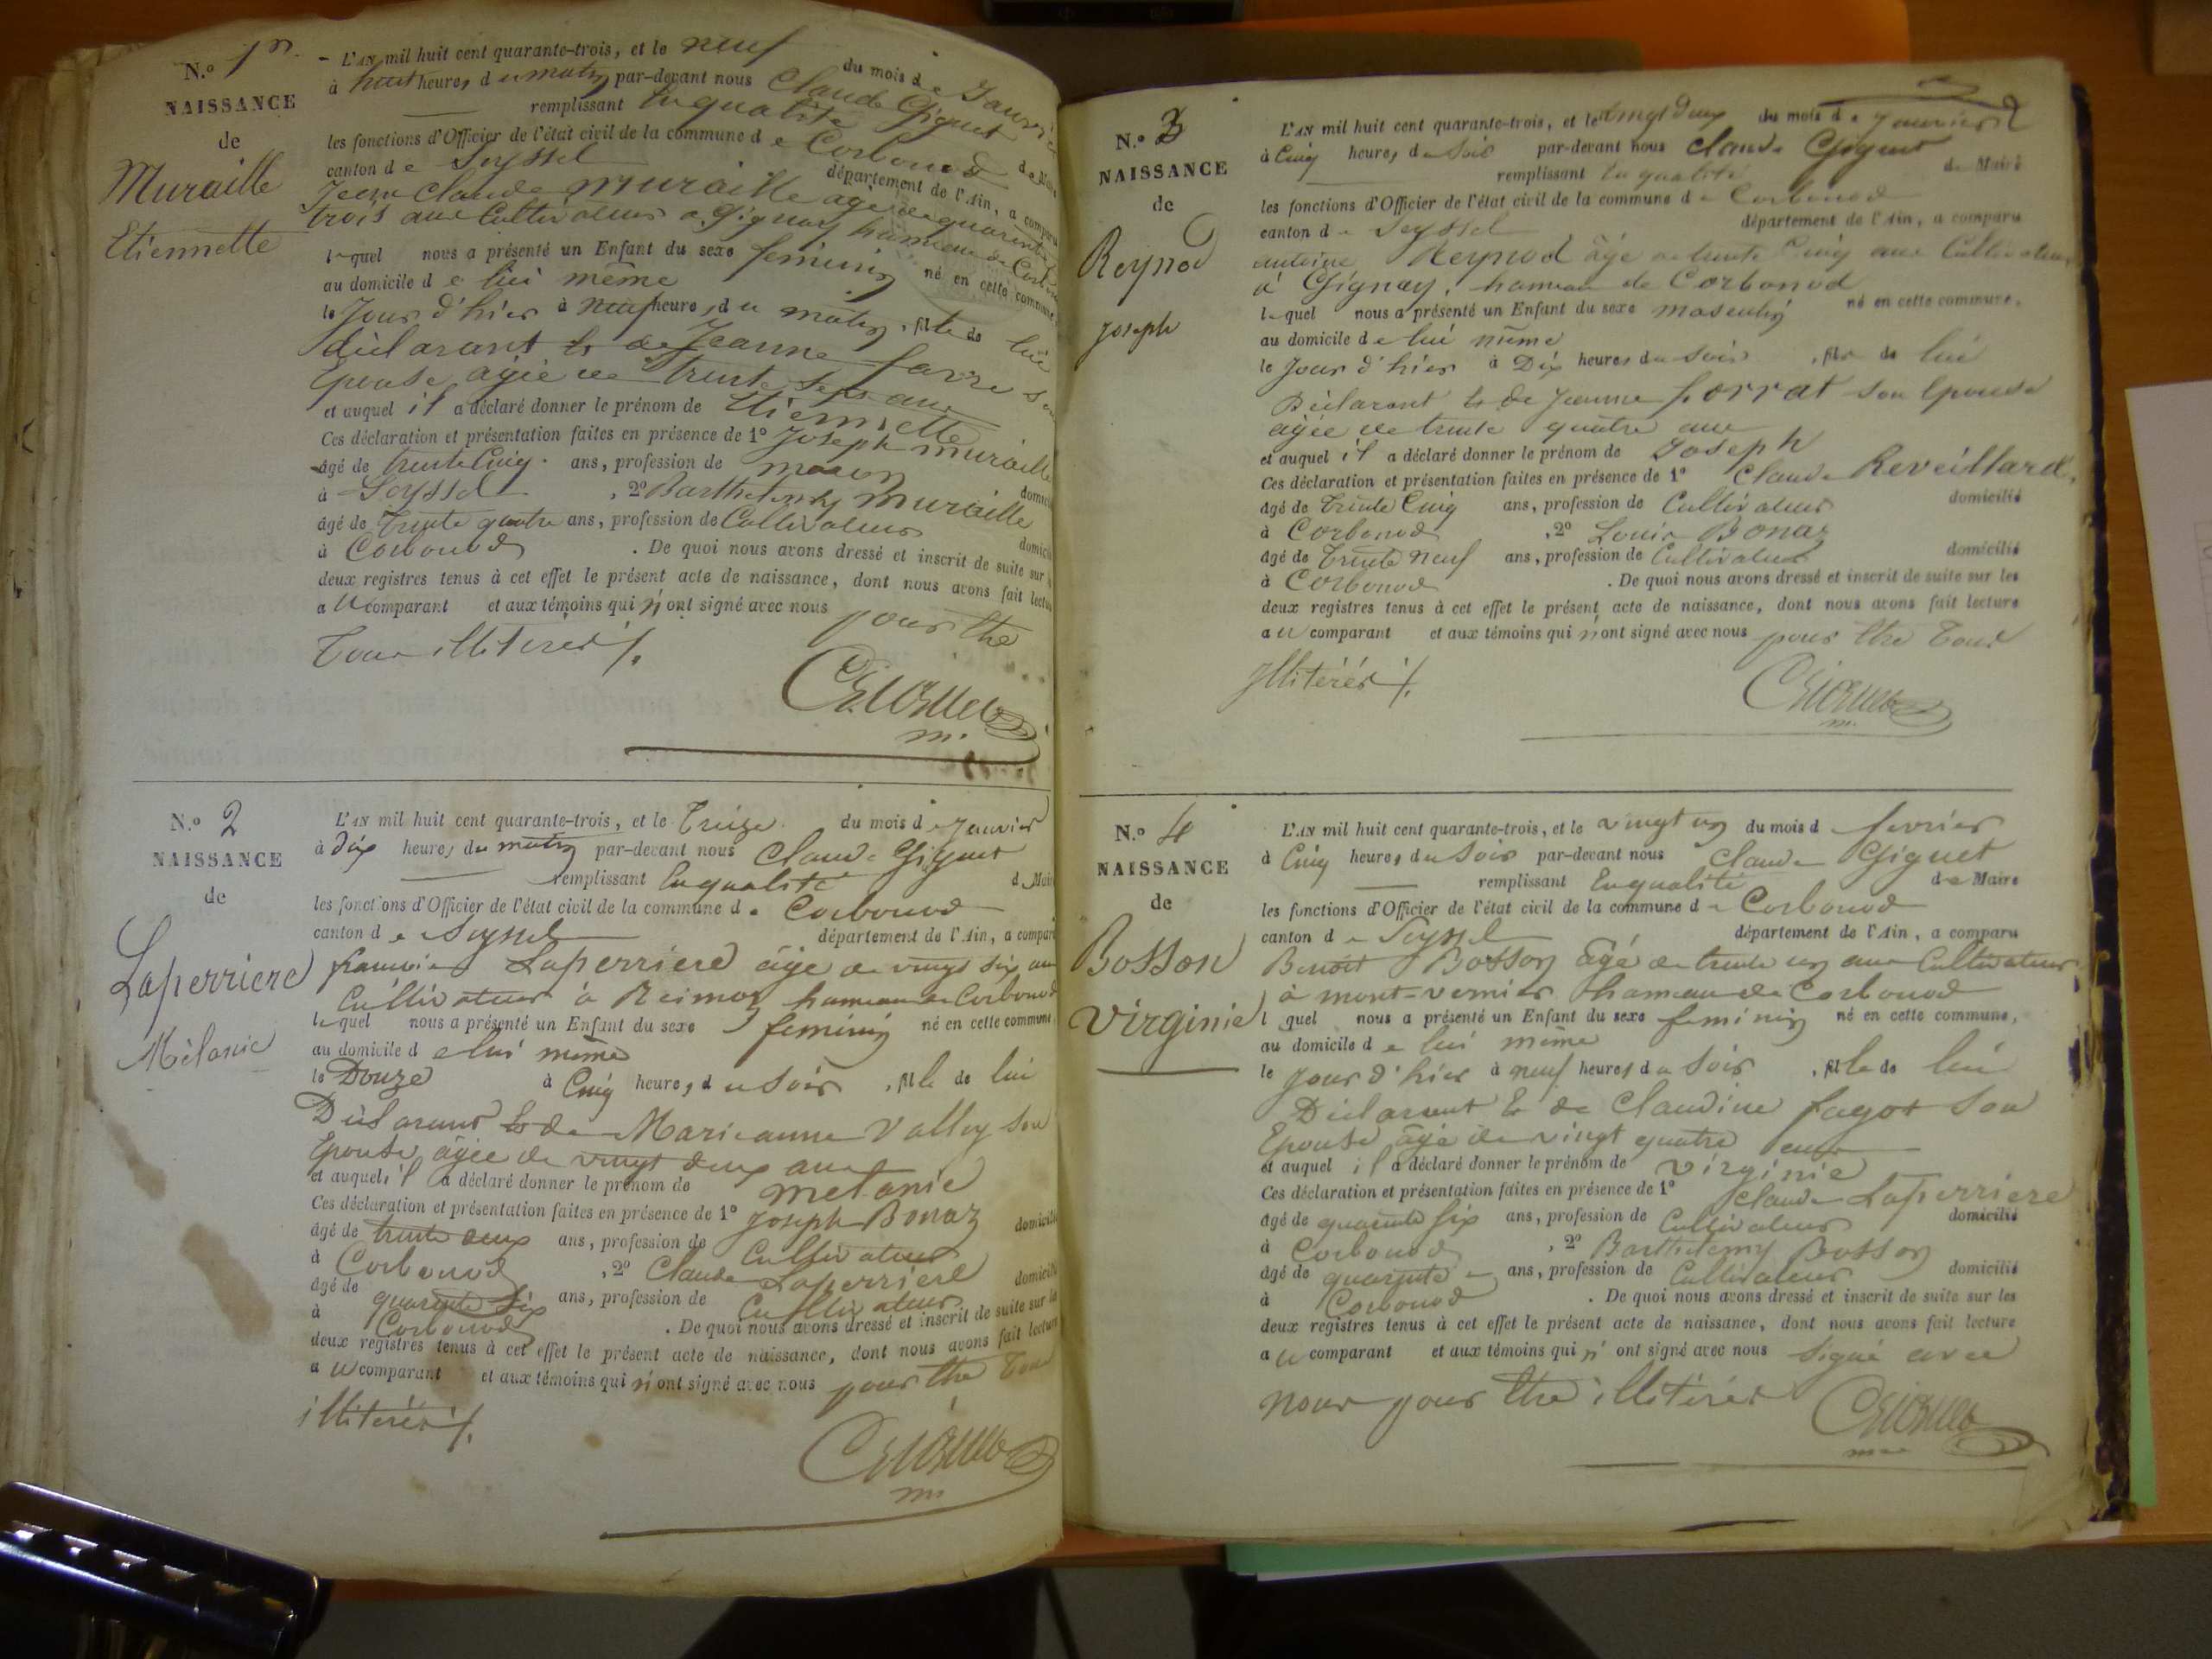 N.o 1er
NAISSANCE
de
Muraille
Etiennette
L'AN mil huit cent quarante-trois, et le neuf du mois de Janvier
à huit heures du matin par-devant nous Claude Gignet
remplissant En qualité de Maire
les fonctions d'Officier de l'état civil de la commune de Corbonod
canton de Seyssel département de l'Ain, a comparu
Jean Claude Muraille agé de quarante
trois ans Cultivateur a Gignay hameau de Corbonod
lequel nous a présenté un Enfant du sexe feminin né en cette commune,
au domicile de lui même
le Jour d'hier à neuf heures du matin, fille de lui
déclarant et de Jeanne favre son
Epouse agée de trente sept ans
et auquel il a déclaré donner le prénom de Etiennette
Ces déclaration et présentation faites en présence de 1o Joseph Muraille
âgé de trente Cinq ans, profession de maçon domicilié
à Seyssel, 2o Barthelemy Muraille
âgé de trente quatre ans, profession de Cultivateur domicilié
à Corbonod. De quoi nous avons dressé et inscrit de suite sur les
deux registres tenus à cet effet le présent acte de naissance, dont nous avons fait lecture
au comparant et aux témoins qui n'ont signé avec nous pour être
Tous illiterés
m.
N.o 2
NAISSANCE
de
Laperriere
Mélanie
L'AN mil huit cent quarante-trois, et le Treize du mois de Janvier
à dix heures du matin par-devant nous Claude Gignet
remplissant En qualité de Maire
les fonctions d'Officier de l'état civil de la commune de Corbonod
canton de Seyssel département de l'Ain, a comparu
francois Laperriere âgé de vingt six ans
Cultivateur à Reimoz hameau de Corbonod
lequel nous a présenté un Enfant du sexe feminin né en cette commune
au domicile de lui même
le Douze à Cinq heures du soir, fille de lui
Déclarant et de Marieanne Vallоy son
Epouse agée de vingt deux ans
et auquel il a déclaré donner le prénom de melanie
Ces déclaration et présentation faites en présence de 1o Joseph Bonaz
âgé de trente deux ans, profession de Cultivateur domicilié
à Corbonod, 2o Claude Laperriere
âgé de quarente six ans, profession de Cultivateur domicilié
à Corbonod. De quoi nous avons dressé et inscrit de suite sur les
deux registres tenus à cet effet le présent acte de naissance, dont nous avons fait lecture
au comparant et aux témoins qui n'ont signé avec nous pour être Tous
illiterés
m.
N.o 3
NAISSANCE
de
Reynod
Joseph
L'AN mil huit cent quarante-trois, et le vingt deux du mois de Janvier
à Cinq heures du Soir par-devant nous Claude Gignet
remplissant En qualité de Maire
les fonctions d'Officier de l'état civil de la commune de Corbonod
canton de Seyssel département de l'Ain, a comparu
antoine Reynod âgé de trente Cinq ans Cultivateur
à Gignay, hameau de Corbonod
lequel nous a présenté un Enfant du sexe masculin né en cette commune,
au domicile de lui même
le Jour d'hier à Dix heures du soir, fils de lui
Déclarant et de Jeanne forrat son Epouse
agée de trente quatre ans
et auquel il a déclaré donner le prénom de Joseph
Ces déclaration et présentation faites en présence de 1o Claude Reveillard,
âgé de Trente Cinq ans, profession de Cultivateur domicilié
à Corbonod, 2o Louis Bonaz
âgé de Trente neuf ans, profession de Cultivateur domicilié
à Corbonod. De quoi nous avons dressé et inscrit de suite sur les
deux registres tenus à cet effet le présent acte de naissance, dont nous avons fait lecture
au comparant et aux témoins qui n'ont signé avec nous pour être Tous
Illitérés
m.
N.o 4
NAISSANCE
de
Bosson
Virginie
L'AN mil huit cent quarante-trois, et le vingt un du mois d fevrier
à Cinq heures du Soir par-devant nous Claude Gignet
remplissant En qualité de Maire
les fonctions d'Officier de l'état civil de la commune de Corbonod
canton de Seyssel département de l'Ain, a comparu
Benoit Bosson âgé de trente un ans Cultivateur
à mont-vernier hameau de Corbonod
l quel nous a présenté un Enfant du sexe feminin né en cette commune,
au domicile de lui même
le Jour d'hier à neuf heures du Soir, fille de lui
Déclarant et de Claudine fagot Son
Epouse agée de vingt quatre ans
et auquel il a déclaré donner le prénom de virginie
Ces déclaration et présentation faites en présence de 1o Claude Laperriere
âgé de quarente six ans, profession de Cultivateur domicilié
à Corbonod, 2o Barthelemy Bosson
âgé de quarente ans, profession de Cultivateur domicilié
à Corbonod. De quoi nous avons dressé et inscrit de suite sur les
deux registres tenus à cet effet le présent acte de naissance, dont nous avons fait lecture
au comparant et aux témoins qui n'ont signé avec nous signé avec
nous pour être illitérés